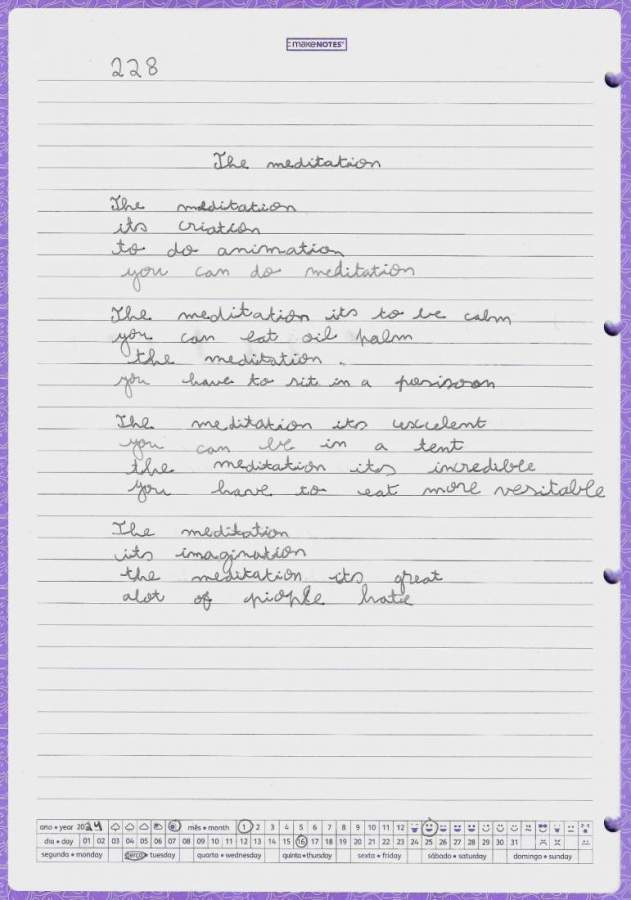 makeNOTES
228
The meditation
The meditation
its criation
to do animation
you can do meditation
The meditation its to be calm
you can eat oil palm
the meditation.
you have to sit in a
The meditation its excelent
you can be in a tent
the meditation its incredible
you have to eat more vesitable
The meditation
its imagination
the meditation its great
alot of piople hate
ano • year 2024 mês • month 1 2 3 4 5 6 7 8 9 10 11 12
dia • day 01 02 03 04 05 06 07 08 09 10 11 12 13 14 15 16 17 18 19 20 21 22 23 24 25 26 27 28 29 30 31
segunda • monday terça • tuesday quarta • wednesday quinta • thursday sexta • friday sábado • saturday domingo • sunday